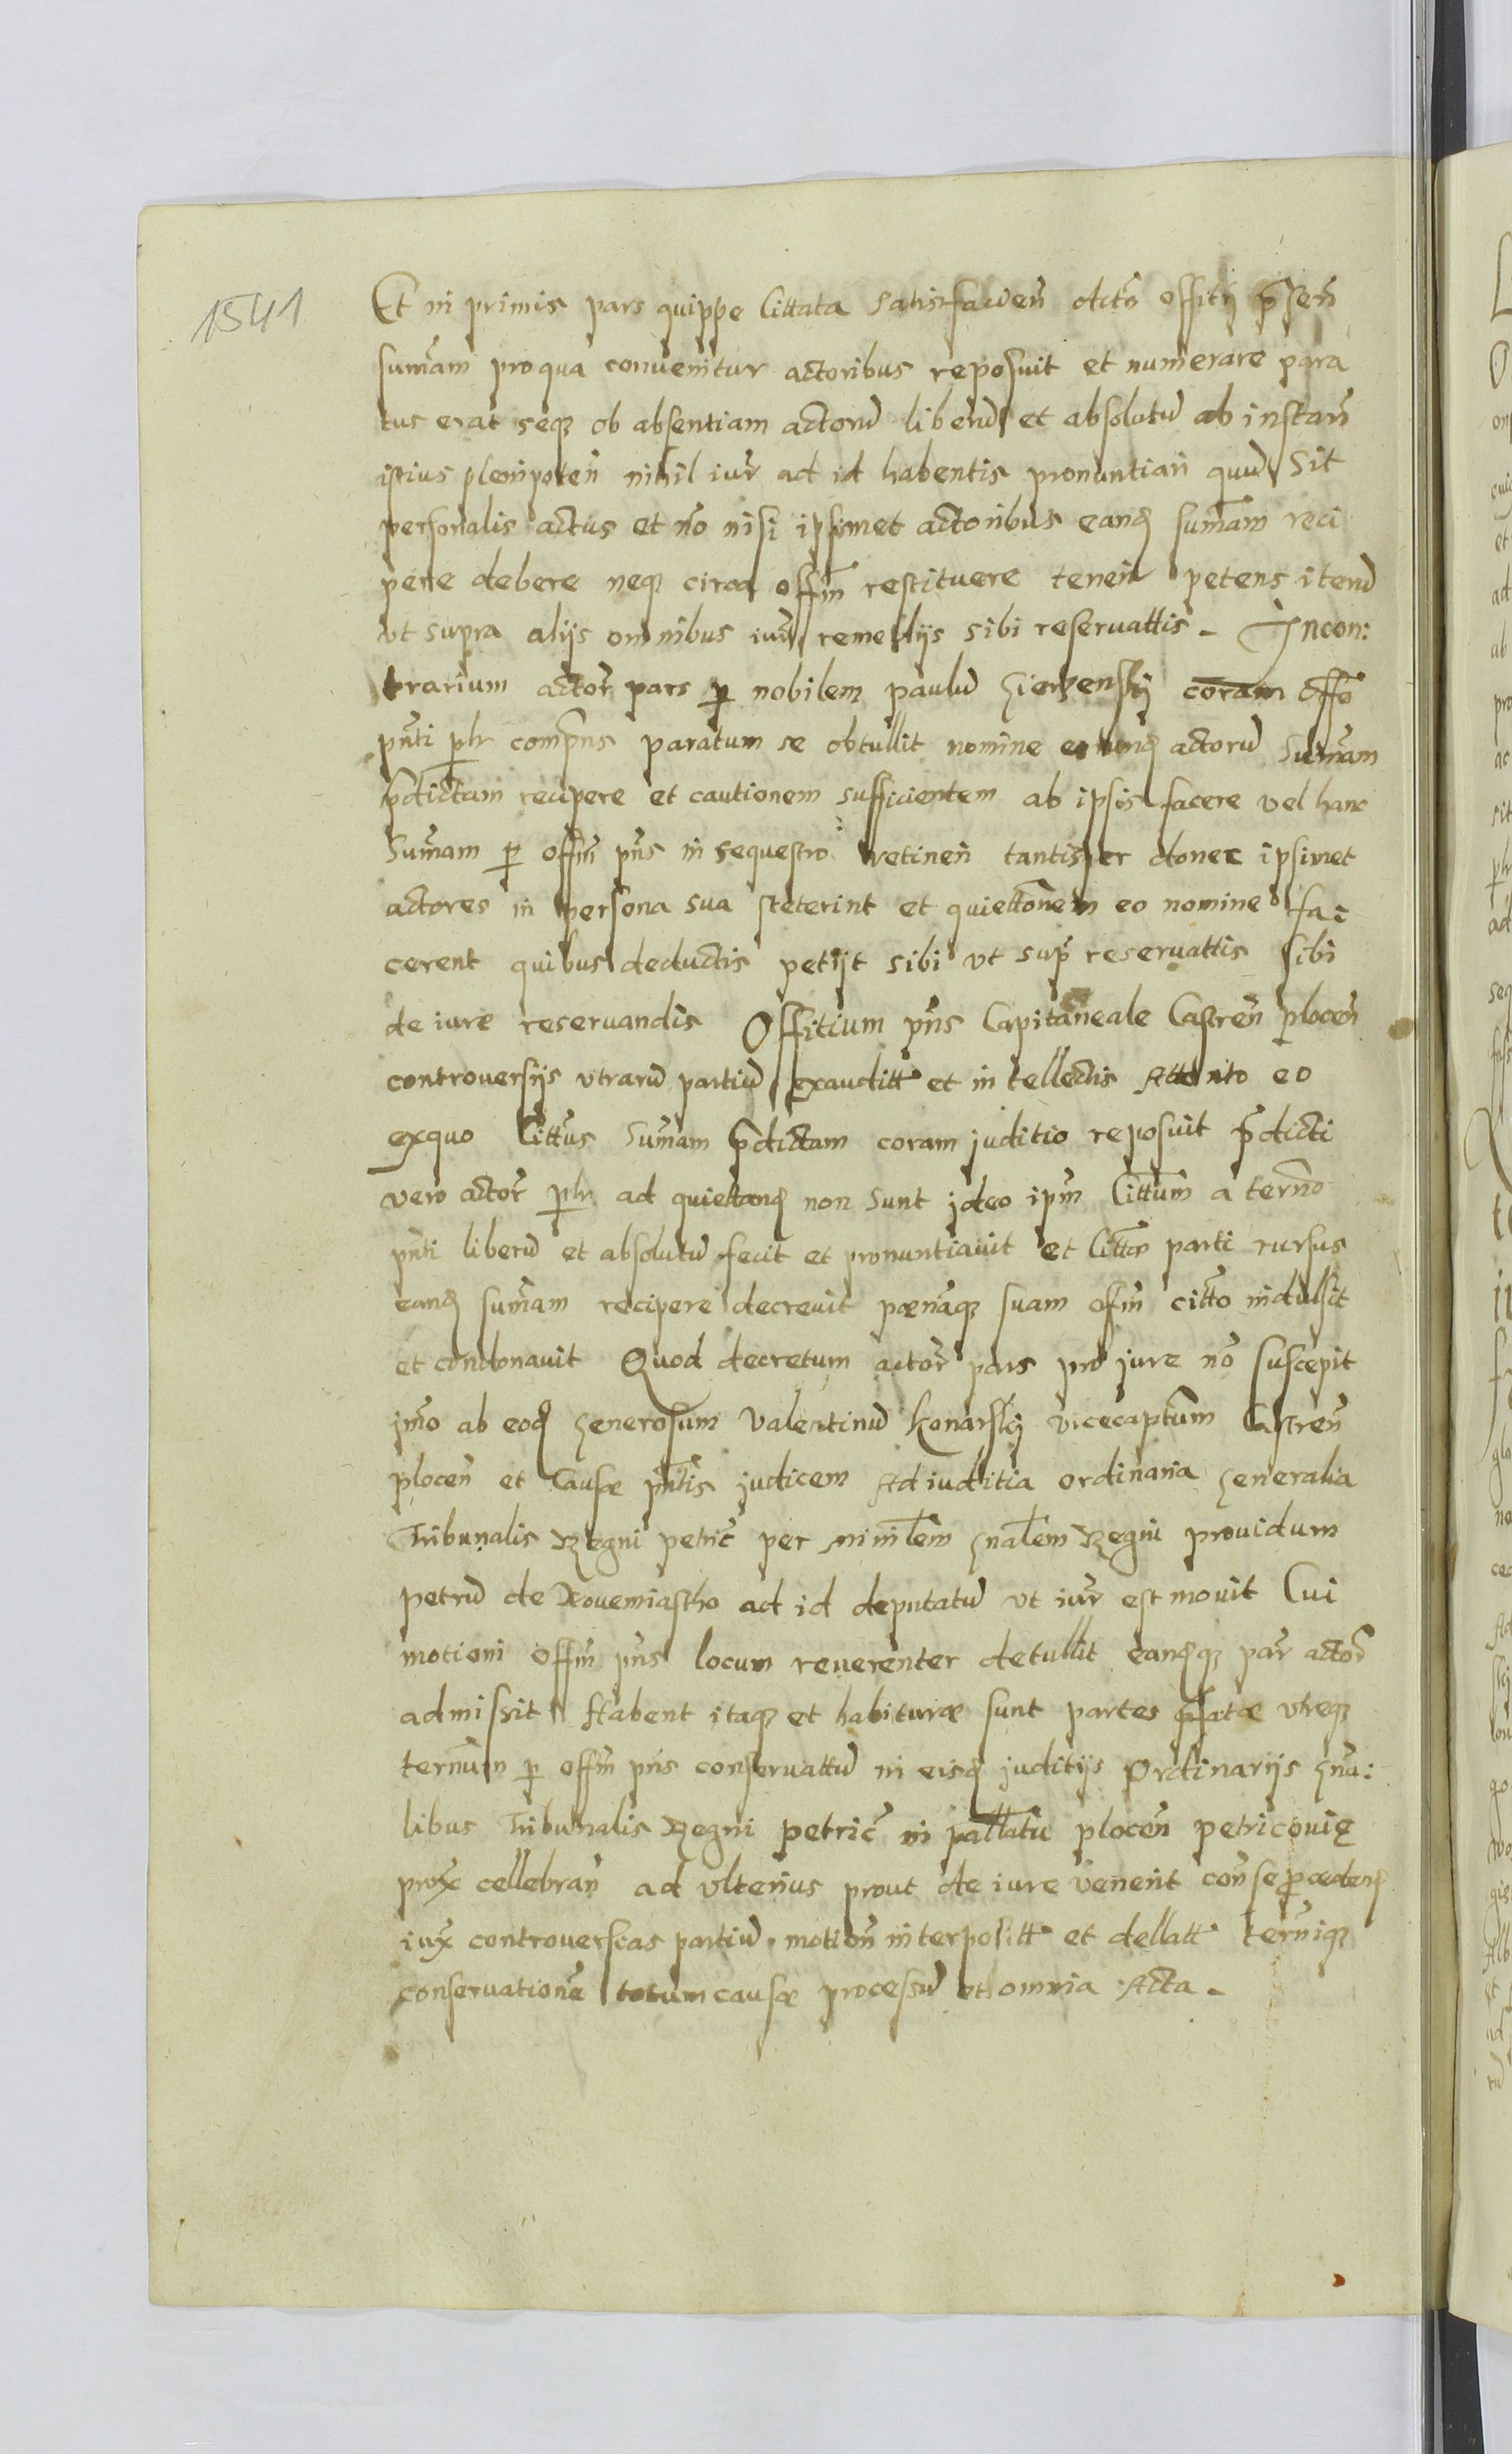 1541
Et in primis pars quippe Cittata satisfacien decreto Offitij p̄sen
sum̄am pro qua conuenitur actoribus reposuit et numerare para
tus erat seq3 ob absentiam actorū liberū et absolutū ab instan̄
istius plenipoten̄ nihil iur̄ ad id habentis pronuntiari quū sit
personalis actus et nō nisi ipsimet actoribus eand sum̄am reci
pere debere neq3 circa offm̄ restituere teneri petens iterū
vt supra alijs omnibus iur̄ remedijs sibi reseruattis - Incon:
trarium actor̄ pars p nobilem paulū Zierzenskij coram Offo
pn̄ti plr comp̄ns paratum se obtullit nomine eorund actorū Sum̄am
p̄dictam recipere et cautionem sufficientem ab ipsis facere vel hanc
Sum̄am p offm̄ pn̄s in sequestro retineri tantisper donec ipsimet
actores in persona sua steterint et quiettōnem eo nomine fa:
cerent quibus deductis petijt sibi vt sup̄ reseruattis sibi
de iure reseruandis Offitium pn̄s Capitaneale Castren̄ plocen̄
controuersijs vtrarū partiū exauditt et intellectis Attento eo
exquo Cittus Sum̄am p̄dictam coram juditio reposuit p̄dicti
vero actor̄ plr ad quiettand non sunt jdeo ipm̄ Cittum a termō
pn̄ti liberū et absolutū fecit et pronuntiauit et Cittæ parti rursus
eand sum̄am recipere decreuit pœnāq3 suam offm̄ citto indulsit
et condonauit Quod decretum actor̄ pars pro jure nō suscepit
imo ab eod Generosum Valentinū Konarskij vicecaptum Castren̄
plocen̄ et Causæ pn̄tis judicem Ad iuditia ordinaria Generalia
Tribunalis Regni petric̄ per minlem Gnalem Regni prouidum
petrū de Nouemiastho ad id deputatū vt iur̄ est mouit Cui
motioni offm̄ pn̄s locum reuerenter detullit eandq3 par̄ actor̄
admissit Habent itaq3 et habituræ sunt partes p̄fatæ vtreq3
termum p offm̄ pn̄s conseruattū in eisd juditijs Ordinarijs Gna:
libus Tribunalis Regni petric̄ in pallatu plocen̄ petricouię
prox cellebran̄ ad vlterius prout de iure venerit conse procedend
iux controuersias partiū motion̄ interpositt et dellatt termiq3
conseruationē totum causæ processū et omnia Acta -